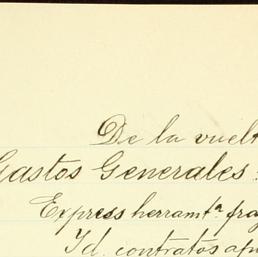 De la vuelt
Gastos Generales
Express herramtª fra
Id. contratos apr